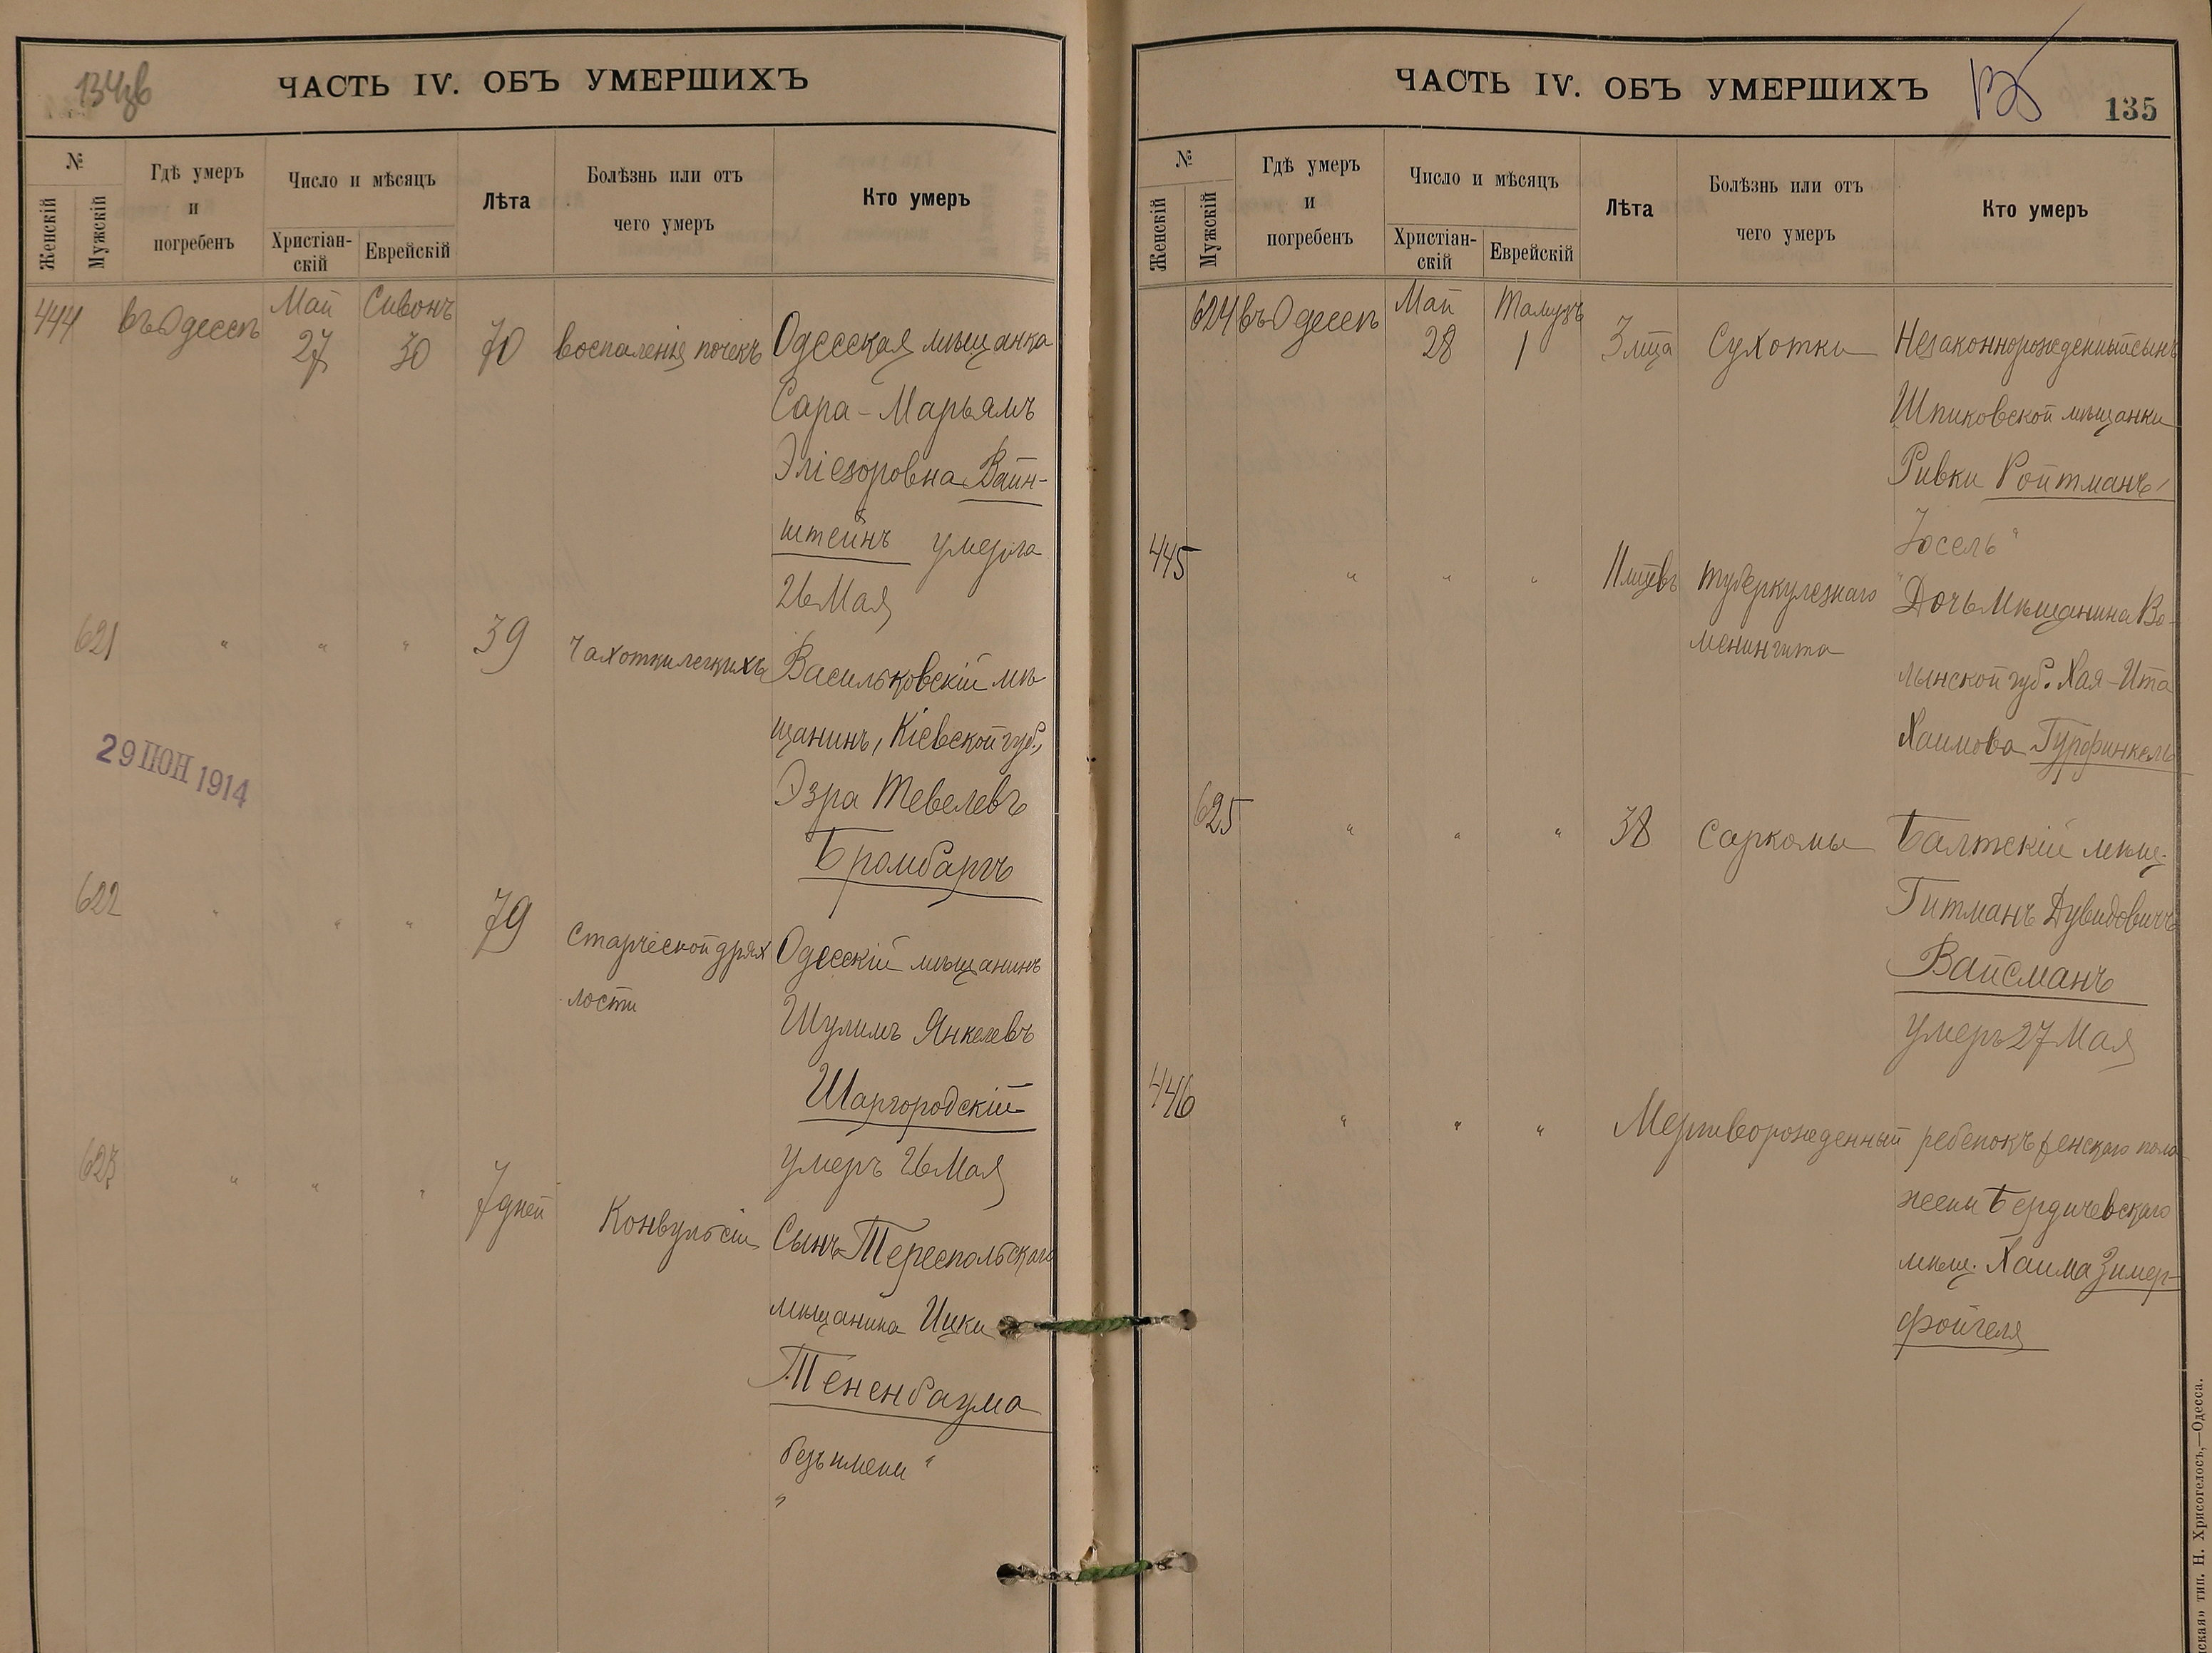 134об
ЧАСТЬ IV. ОБЪ УМЕРШИХЪ
№
Женскій
Мужскій
Гдѣ умеръ
и
погребенъ
Число и мѣсяцъ
Христіан-
скій
Еврейскій
Лѣта
Болѣзнь или отъ
чего умеръ
Кто умеръ
444 въ Одессѣ Май 27 Сивонъ 30 70 воспаленія почекъ Одесская мѣщанка
Сара-Марьямъ
Эліезоровна Вайн-
штейнъ умерла
26 Мая
621 " " " 39 чахотки легкихъ Васильковскій мѣ
щанинъ, Кіевской губ.,
Эзра Тевелевъ
Бромбаргъ
29 ІЮН 1914
622 " " " 79 старческой дрях Одесскій мѣщанинъ
лости
Шулимъ Янкелевъ
Шаргородскій
умеръ 26 Мая
623 " " " 7 дней Конвульсіи Сынъ Тереспольскаго
мѣщанина Ицки
Тененбаума
безъ имени "
"
ЧАСТЬ IV. ОБЪ УМЕРШИХЪ
135
№
Женскій
Мужскій
Гдѣ умеръ
и
погребенъ
Число и мѣсяцъ
Христіан-
скій
Еврейскій
Лѣта
Болѣзнь или отъ
чего умеръ
Кто умеръ
624 въ Одессѣ Май 28 Тамузъ 1 3 мца Сухотки Незаконнорожденный сынъ
Шпиковской мѣщанки
Ривки Ройтманъ
Іосель "
445 " " " 11 мцевъ туберкулезнаго Дочь мѣщанина Во-
менингита
лынской губ. Хая-Ита
Хаимова Гурфинкель
625 " " " 38 Саркомы Балтскій мѣщ.
Гитманъ Дувидовичъ
Вайсманъ
умеръ 27 Мая
446 " " " Мертворожденный ребенокъ женскаго пола
жены Бердичевскаго
мѣщ. Хаима Зимер-
фойгеля
ская» тип. Н. Хрисогелосъ,—Одесса.